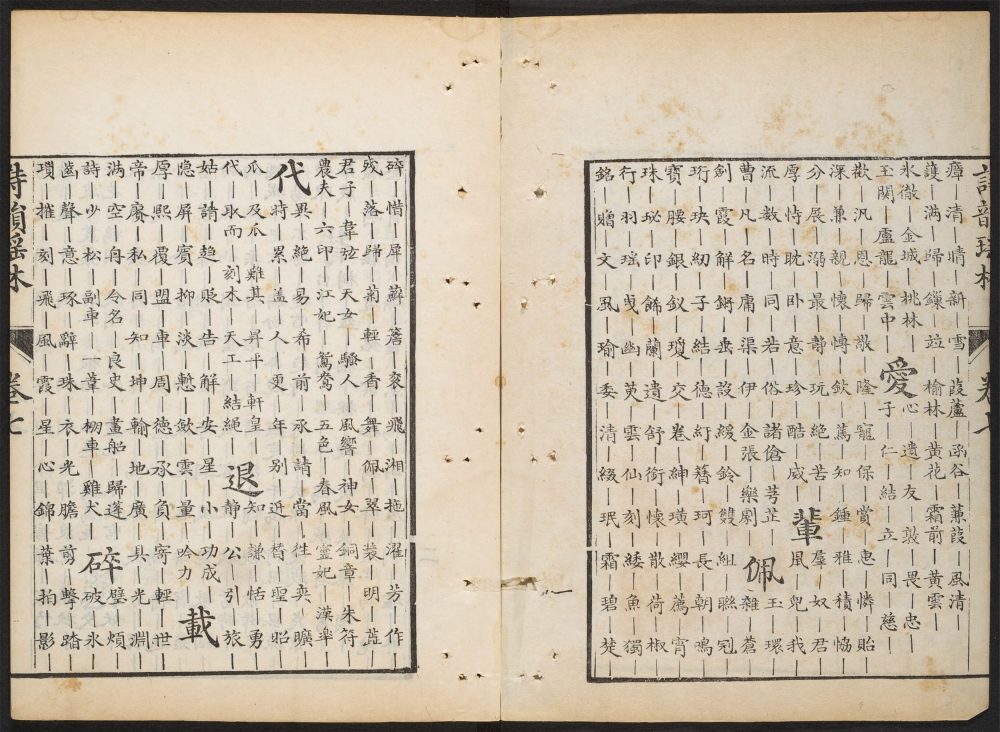 瘴｜清｜晴｜新｜雪｜葭蘆｜函谷｜蒹葭｜風清｜
護｜滿｜歸｜鏁｜竝｜榆林｜黃花｜霜前｜黃雲｜
氷徹｜金城｜桃林｜愛心｜遺｜友｜敦｜畏｜忠｜
玉関｜盧龍｜雲中｜子｜仁｜結｜立｜同｜慈｜
歡｜汎｜恩｜歸｜散｜隆｜寵｜保｜賞｜惠｜憐｜貽｜
深｜兼｜親｜懷｜慱｜欽｜篤｜知｜鍾｜雅｜積｜恊｜
分｜展｜溺｜最｜玩｜絕｜苦｜輩羣｜奴｜君｜
厚｜恃｜耽｜卧｜意｜珍｜酷｜威｜風｜兒｜我｜
流｜数｜時｜同｜若｜俗｜諸傖｜芎芷｜佩玉｜環｜
曹｜凡｜名｜庸｜渠｜伊｜金張｜樂劇｜雜｜蒼｜
劍｜霞｜解｜鏘｜垂｜設｜緩｜鈴｜雙｜組｜聯｜冠｜
珩｜玦｜紉｜子｜結｜德｜紆｜簪｜珂｜長｜朝｜鳴｜
寶｜腰｜銀｜釵｜瓊｜交｜卷｜紳｜璜｜纓｜薦｜宵｜
珠｜珌｜印｜飾｜蘭｜遺｜舒｜銜｜懷｜散｜荷｜椒｜
行｜羽｜瑶｜曳｜幽｜英｜雲｜仙｜刻｜緌｜魚｜獨｜
銘｜贈｜文｜風｜瑜｜委｜清｜綴｜珉｜霜｜碧｜楚｜
碎｜惜｜犀｜蘇｜簷｜衮｜飛｜湘｜拖｜濯｜芳｜作｜
殘｜落｜歸｜菊｜輕｜香｜舞｜佩｜翠｜裝｜明｜茝｜
君子｜韋弦｜天女｜騷人｜風響｜神女｜銅章｜朱符｜
農夫｜六印｜江妃｜鴛鴦｜五色｜春風｜靈妃｜漢皋｜
代異｜絕｜易｜希｜前｜永｜請｜當｜徃｜奕｜曠｜
時｜累｜盖｜人｜更｜年｜别｜近｜替｜聖｜昭｜
瓜｜及瓜｜難其｜昇平｜軒皇｜退知｜謙｜恬｜勇｜
代｜取而｜刻木｜天工｜結繩｜靜｜公｜引｜旅｜
姑｜請｜趋｜貶｜告｜解｜安｜星｜小｜功成｜載
隐｜屏｜賓｜抑｜淡｜慙｜歛｜雲｜量｜吟力｜
厚｜熙｜覆｜盟｜車｜周｜德｜永｜負｜寄｜輕｜世｜
帝｜賡｜私｜同｜知｜坤｜輸｜地｜廣｜具｜光｜淵｜
满｜空｜舟｜令名｜良史｜畫船｜歸蓬｜碎璧｜煩｜
詩｜少｜松｜副車｜一葦｜栁車｜雞犬｜破｜氷｜
齒｜聲｜意｜琢｜辭｜珠｜衣｜光｜膽｜剪｜擊｜踏｜
瑣｜摧｜刻｜飛｜風｜霞｜星｜心｜錦｜葉｜拍｜影｜
詩韻瑶林 卷七